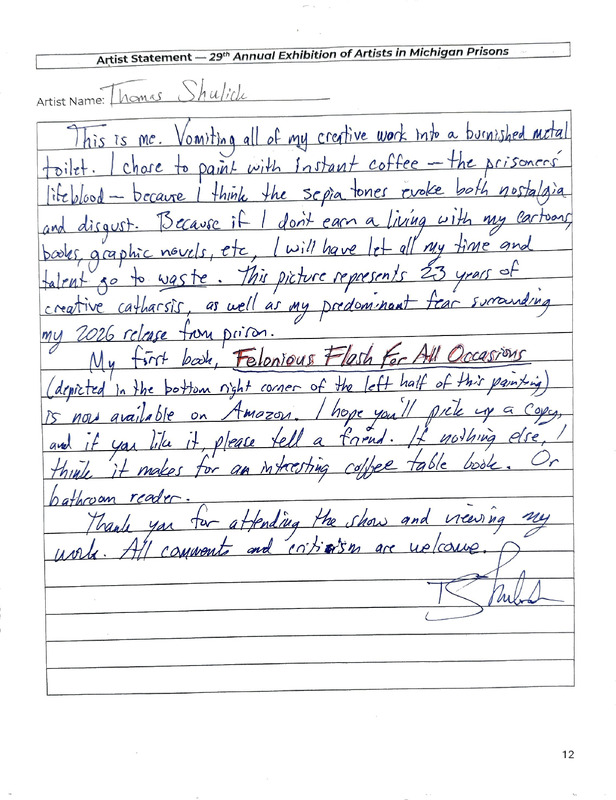 Artist Statement — 29th Annual Exhibition of Artists in Michigan Prisons
Artist Name: Thomas Shulick
This is me. Vomiting all of my creative work into a burnished metal
toilet. I chose to paint with instant coffee — the prisoners'
lifeblood — because I think the sepia tones evoke both nostalgia
and disgust. Because if I don't earn a living with my cartoons,
books, graphic novels, etc, I will have let all my time and
talent go to waste. This picture represents 23 years of
creative catharsis, as well as my predominant fear surrounding
my 2026 release from prison.
My first book, Felonious Flash For All Occasions
(depicted in the bottom right corner of the left half of this painting)
is now available on Amazon. I hope you'll pick up a copy,
and if you like it, please tell a friend. If nothing else, I
think it makes for an intresting coffee table book. Or
bathroom reader.
Thank you for attending the show and viewing my
work. All comments and critisism are welcome.
12